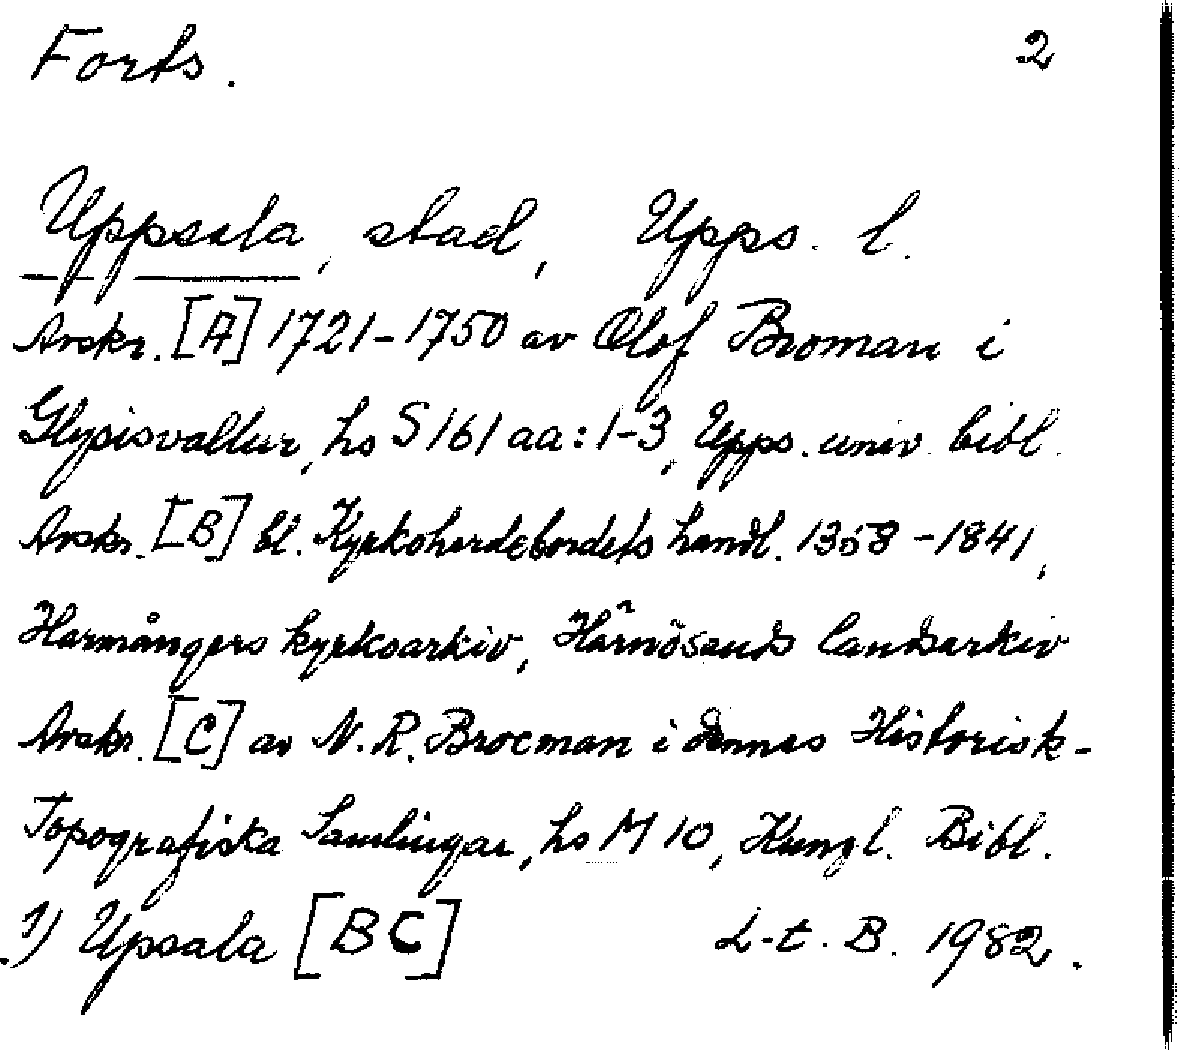 Forts. 2
Uppsala, stad, Upps. l.
Avskr. [A] 1721-1750 av Olof Broman i
Glysisvallur, hs S 161 aa: 1-3, Upps. univ. bibl.
Avskr. [B] bl. Kyrkoherdebordets handl. 1358-1841,
Harmångers kyrkoarkiv, Härnösands landsarkiv
Avskr. [C] av N. R. Brocman i dennes Historisk-
Topografiska Samlingar, hs M 10, Kungl. Bibl.
1) Upsala [BC] L-t. B. 1982.